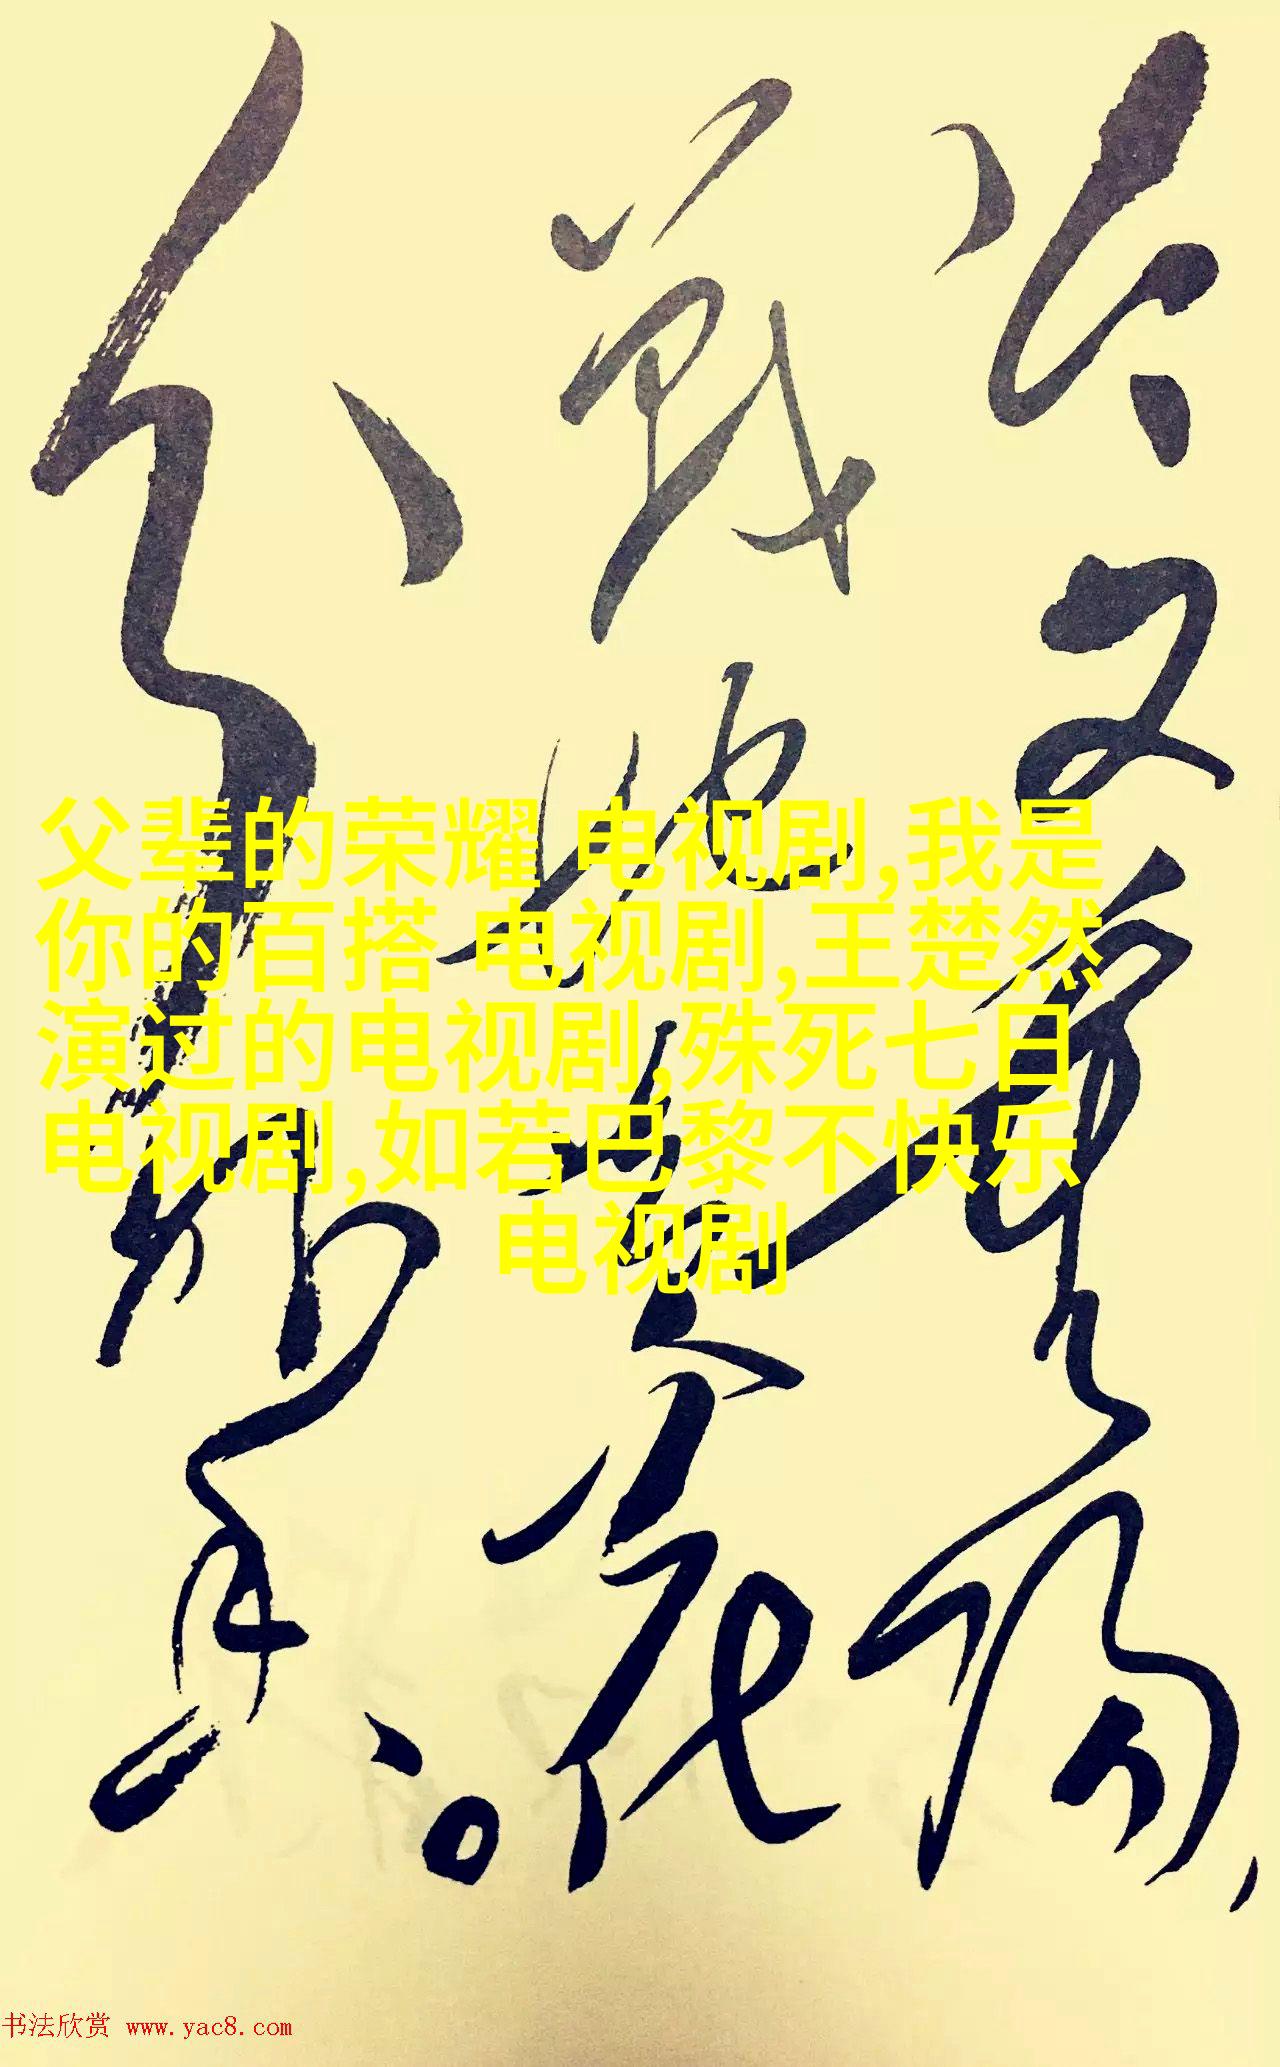 今又重陽，
戰地黄花
分外香。
父辈的荣耀 电视剧,我是
你的百搭 电视剧,王楚然
演过的电视剧,殊死七日
电视剧,如若巴黎不快乐
电视剧
书法欣赏 www.yac8.com